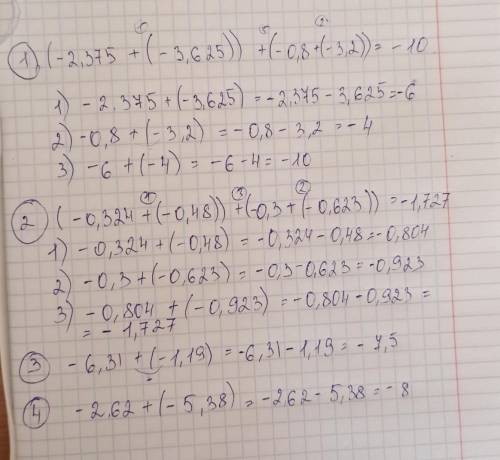 ① (-2,375 + (-3,625)) + (-0,8 + (-3,2)) = -10
1) -2.375 + (-3,625) = -2,375 - 3,625 = -6
2) -0,8 + (-3,2) = -0,8 - 3,2 = -4
3) -6 + (-4) = -6 - 4 = -10
② (-0,324 + (-0,48)) + (-0,3 + (-0,623)) = -1,727
1) -0,324 + (-0,48) = -0,324 - 0,48 = -0,804
2) -0,3 + (-0,623) = -0,3 - 0,623 = -0,923
3) -0,804 + (-0,923) = -0,804 - 0,923 =
= -1,727
③ -6,31 + (-1,19) = -6,31 - 1,19 = -7,5
④ -2.62 + (-5,38) = -2.62 - 5,38 = -8